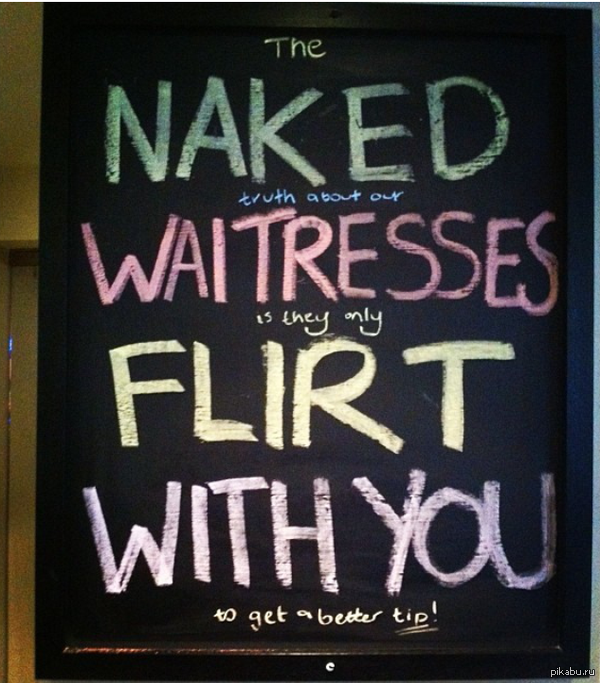 The
NAKED
truth about our
WAITRESSES
is they only
FLIRT
WITH YOU
to get a better tip!
pikabu.ru